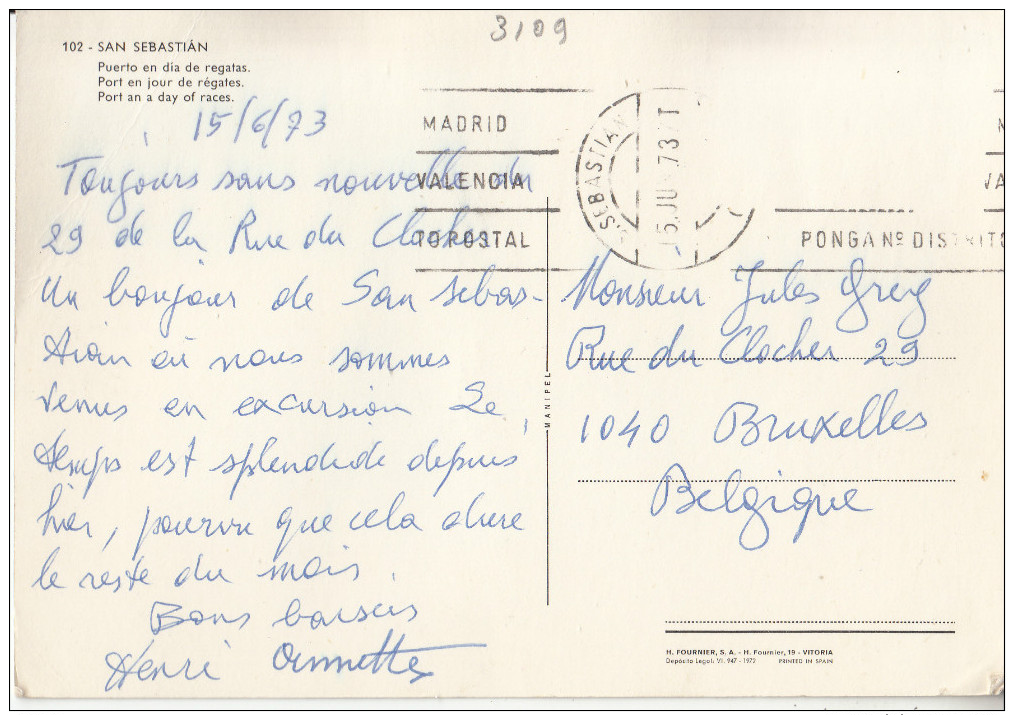 3109
102 - SAN SEBASTIÁN
Puerto en día de regatas.
Port en jour de régates.
Port an a day of races.
15/6/73
Toujours sans nouvelle du
29 de la Rue du Clocher.
Un bonjour de San Sebas-
tian où nous sommes
venus en excursion Le
temps est splendide depuis
hier, pourvu que cela dure
le reste du mois.
Bons baisers
Henri Annette
MADRID
VALENCIA
TOPOSTAL
SEBASTIAN
15.JUN.73
PONGA Nº DISTRITO
Monsieur Jules
Rue du Clocher 29
1040 Bruxelles
Belgique
MANIPEL
H. FOURNIER, S. A. - H. Fournier, 19 - VITORIA
Depósito Legal: VI. 947 - 1972 PRINTED IN SPAIN